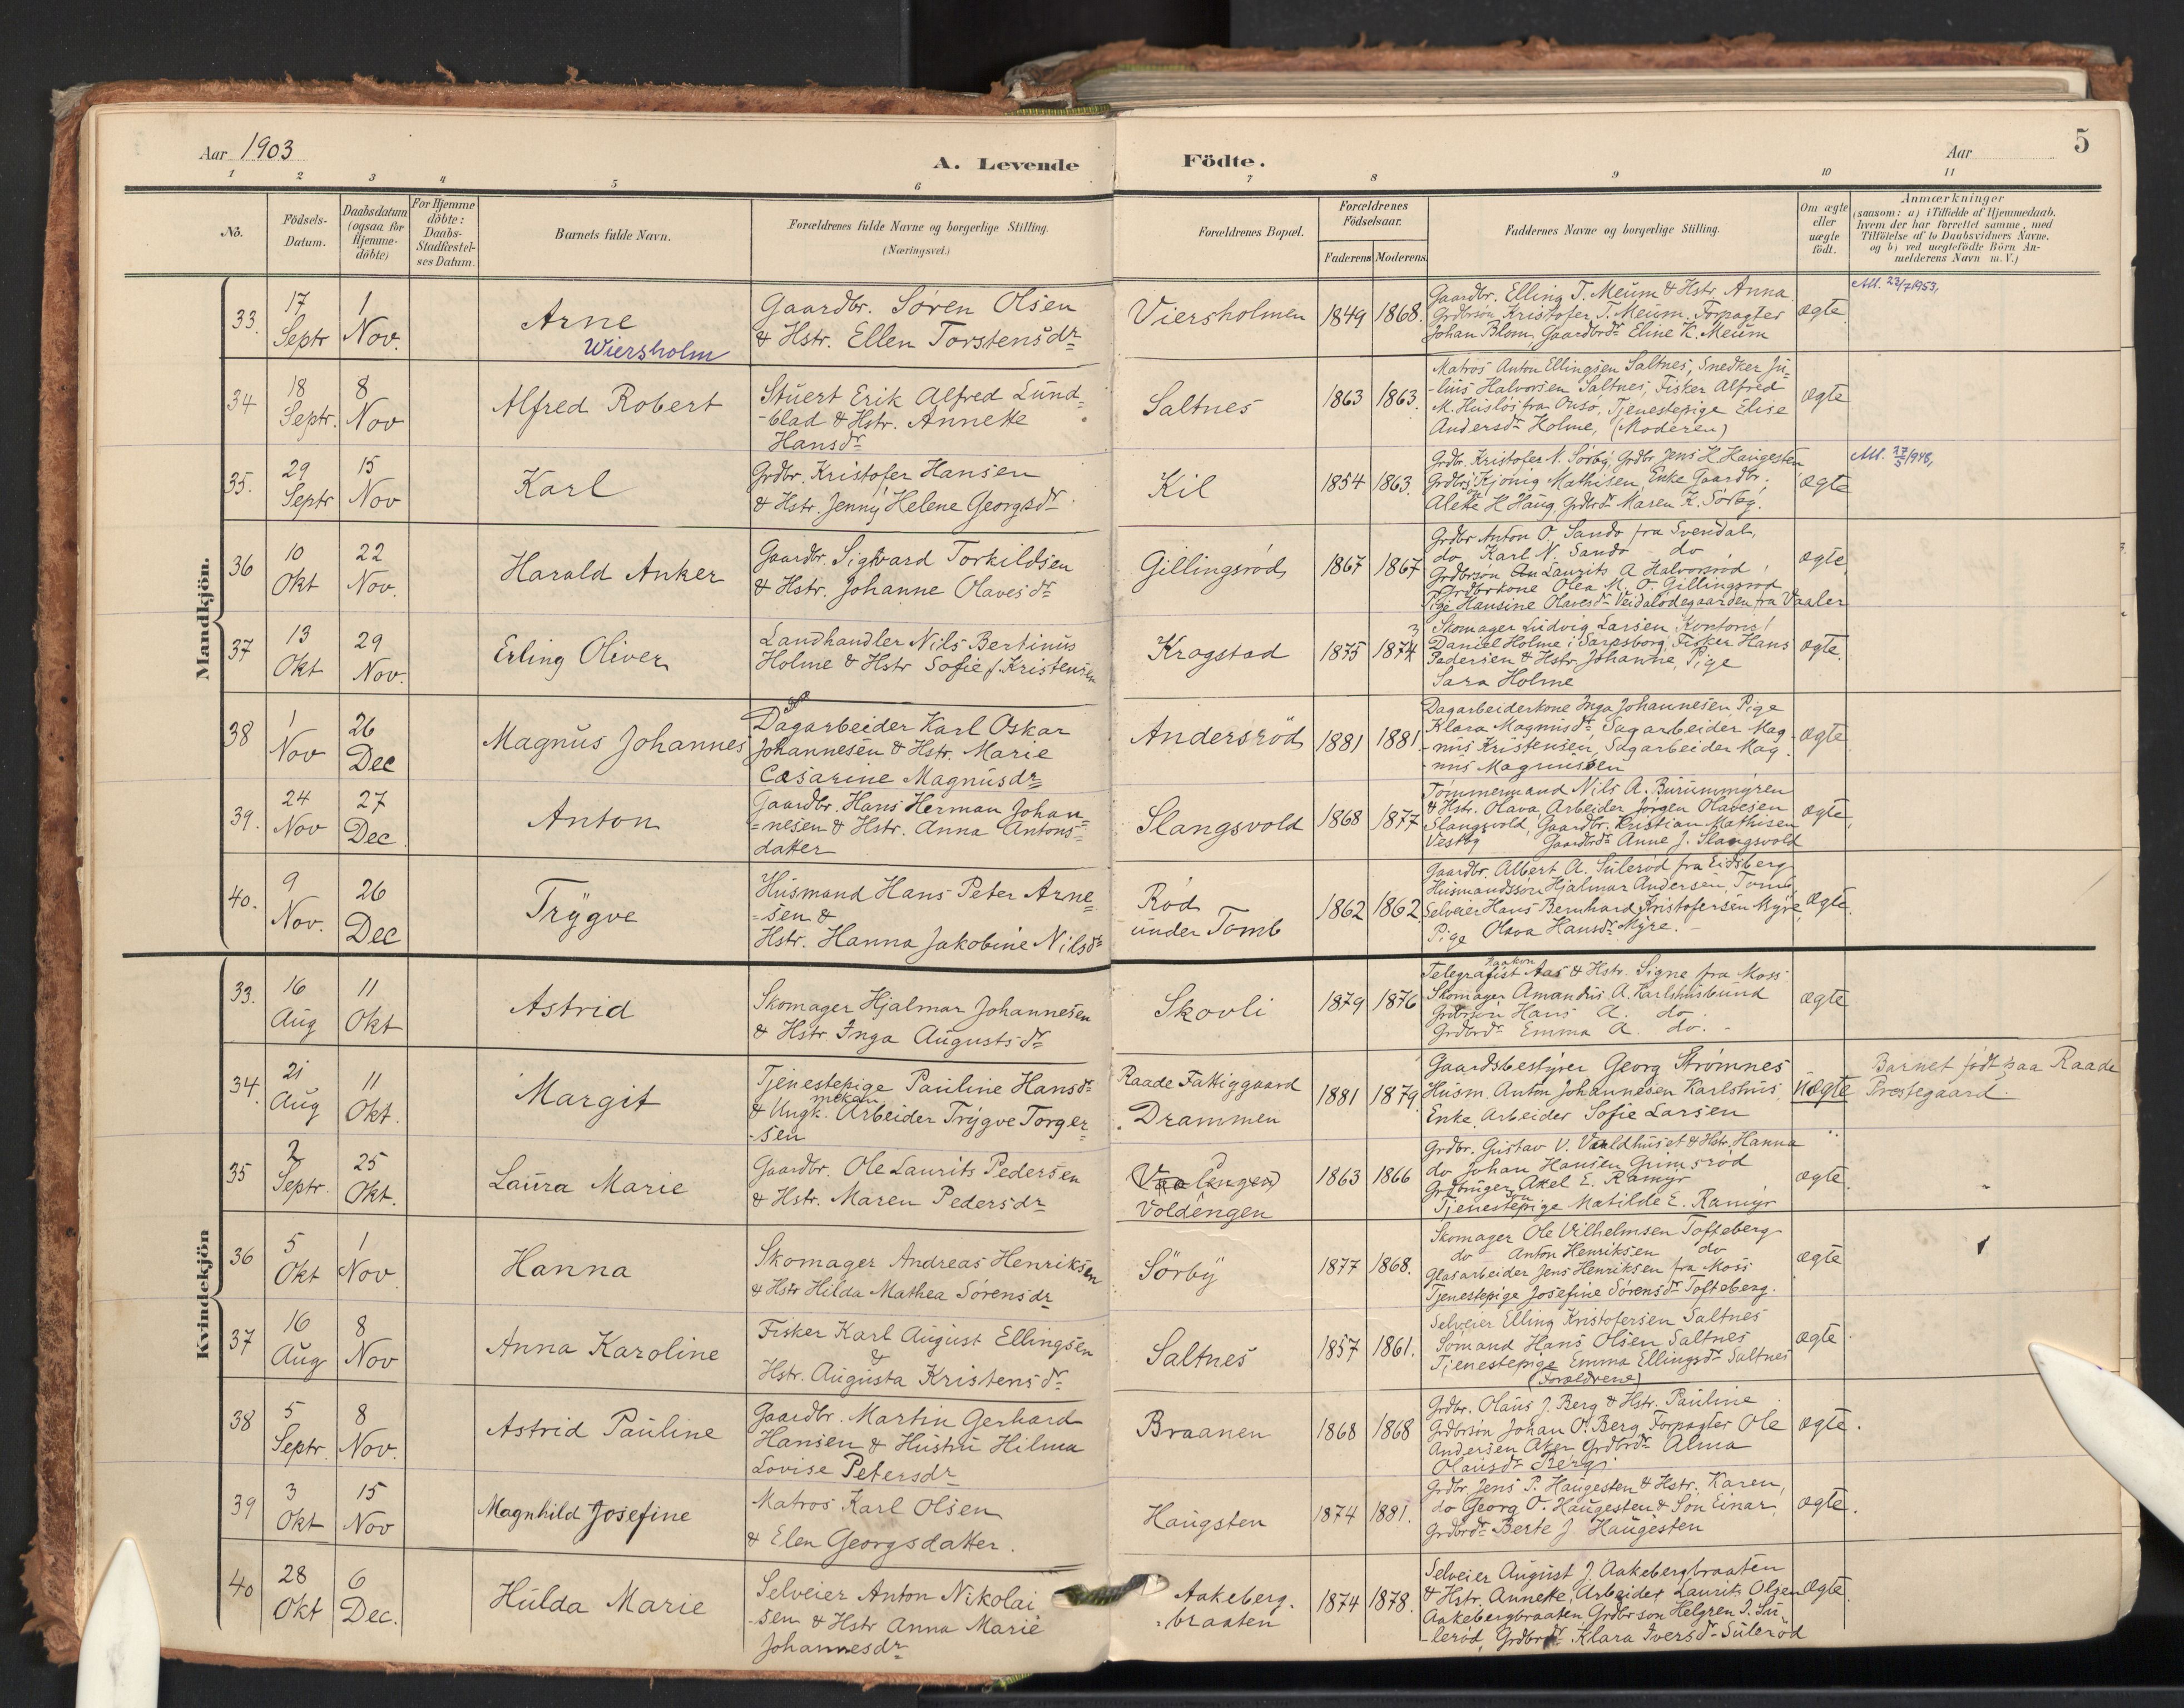 Aar 1903
A. Levende
Födte.
Aar
5
1 2 3 4 5 6 7 8 9 10 11
No.
Födsels-
Datum.
Daabsdatum
(ogsaa for
Hjemme-
döbte)
For Hjemme
döbte:
Daabs-
Stadfæstel-
ses Datum.
Barnets fulde Navn.
Forældrenes fulde Navne og borgerlige Stilling.
(Næringsvei.)
Forældrenes Bopæl.
Forældrenes
Födselsaar.
Faderens Moderens
Faddernes Navne og borgerlige Stilling.
Om ægte
eller
uægte
födt.
Anmærkninger
(saasom: a) i Tilfælde af Hjemmedaab.
hvem der har forrettet samme, med
Tilföielse af to Daabsvidners Navne.
og b) ved uægtefödte Börn An-
melderens Navn m. V.)
Mandkjön.
33.
17 Septr
1 Nov.
Arne
Wiersholm
Gaardbr. Søren Olsen
& Hstr. Ellen Torstensdr
Viersholmen
1849 1868.
Gaardbr. Elling T. Meum & Hstr. Anna
Grdbrsön Kristofer T. Meum. Forpagter
Johan Blom, Gaardbrdr Eline K. Meum
ægte
Att. 22/7 1953,
34
18 Septr.
8 Nov
Alfred Robert
Stuert Erik Alfred Lund-
-blad & Hstr. Annette
Hansdr
Saltnes
1863 1863.
Matros Anton Ellingsen Saltnes, Snedker Ju-
-lius Halvorsen Saltnes, Fisker Alfred
M. Huslös fra Onsö, Tjenestepige Elise
Andersdr Holme, (Moderen)
ægte
35.
29 Septr
15 Nov
Karl
Grdbr. Kristofer Hansen
& Hstr. Jenny Helene Georgsdr
Kil
1854 1863.
Grdbr. Kristofer N. Sørby, Grdbr Jens H Haugesten
Grdbrs Kjönig Mathisen, Enke Gaardbr.
Alette H Haug, Grdbrdr Maren K. Sørby.
ægte
Att. 27/5 1948,
36
10 Okt
22 Nov.
Harald Anker
Gaardbr. Sigvard Torkildsen
& Hstr. Johanne Olavesdr
Gillingsröd
1867 1867
Grdbr Anton O. Sandö fra Svendal,
do Karl N. Sandö do
Grdbrsön An Laurits A Halvorsröd
Grdbrkone Olea M. O. Gillingsröd
Pige Hansine Olavesdr Veidalödegaarden fra Vaaler
ægte
37
13 Okt
29 Nov.
Erling Oliver
Landhandler Nils Bertinus
Holme & Hstr Sofie f. Kristensen
Krogstad
1875 1874
Skomager Ludvig Larsen, Kontorist
Daniel Holme i Sarpsborg, Fisker Hans
Pedersen & Hstr Johanne, Pige
Sara Holme
ægte.
38
1 Nov
26 Dec
Magnus Johannes
Dagarbeider Karl Oskar
Johannesen & Hstr. Marie
Cæsarine Magnusdr
Andersröd
1881 1881
Dagarbeiderkone Inga Johannesen Pige
Klara Magnusdr Sagarbeider Mag-
-nus Kristensen, Sagarbeider Mag-
-nus Magnussen
ægte
39.
24 Nov
27 Dec
Anton
Gaardbr. Hans Herman Johan-
=nesen & Hstr. Anna Antons-
datter
Slangsvold
1868 1877
Tömmermand Nils A. Burummyren
& Hstr. Olava, Arbeider Jörgen Olavesen
Slangsvold, Gaardbr. Kristian Mathisen
Vestby Gaardbrdr Anne J. Slangsvold
ægte
40.
9 Nov.
26 Dec
Trygve
Husmand Hans Peter Arne-
=sen &
Hstr. Hanna Jakobine Nilsdr
Röd
under Tomb
1862 1862.
Gaardbr. Albert A. Suleröd fra Eidsberg
Husmandssön Hjalmar Andersen, Tomb
Selveier Hans Bernhard Kristofersen Myre,
Pige Olava Hansdr Myre.
Ægte.
Kvindekjön
33.
16 Aug
11 Okt
Astrid
Skomager Hjalmar Johannesen
& Hstr. Inga Augustsdr
Skovli
1879 1876
Haakon
Telegrafist Aas & Hstr. Signe fra Moss
Skomager Amandus A. Karlshusbund
Grdbrsön Hans A. do
Grdbrdr Emma A. do.
ægte
34.
21 Aug
11 Okt.
Margit
Tjenestepige Pauline Hansdr
mekan.
& Ungk. Arbeider Trygve Torger-
-sen
Raade Fattiggaard
Drammen
1881 1879.
Gaardsbestyrer Georg Strømnes
Husm. Anton Johannesen Karlshus
Enke Arbeider Sofie Larsen
Uægte
Barnet født paa Raade
Prestegaard.
35
2 Septr.
25 Okt.
Laura Marie
Gaardbr. Ole Laurits Pedersen
& Hstr. Maren Pedersdr
Vaalengen
Voldengen
1863 1866
Grdbr. Gustav V. Valdhuset & Hstr. Hanna
do Johan Hansen Grimsröd
Grdbruger Axel E. Ramyr
sön
Tjenestepige Matilde E. Ramyr
ægte.
36
5 Okt
1 Nov
Hanna
Skomager Andreas Henriksen
& Hstr Hilda Mathea Sörensdr
Sörby
1877 1868.
Skomager Ole Vilhelmsen Tofteberg
do Anton Henriksen do
Glasarbeider Jens Henriksen fra Moss
Tjenestepige Josefine Sörensdr Tofteberg.
ægte
37
16 Aug
8 Nov
Anna Karoline
Fisker Karl August Ellingsen
&
Hstr. Augusta Kristensdr
Saltnes
1857 1861.
Selveier Elling Kristofersen Saltnes
Sömand Hans Olsen Saltnes
Tjenestepige Emma Ellingsdr Saltnes
(Forældrene)
ægte
38
5 Septr.
8 Nov.
Astrid Pauline
Gaardbr. Martin Gerhard
Hansen & Hustru Hilma
Lovise Petersdr
Braanen
1868 1868
Grdbr. Olaus J. Berg & Hstr. Pauline
Grdbrsön Johan O. Berg Forpagter Ole
Andersen Aker Grdbrdr Alma
Olausdr Berg
ægte.
39
3 Okt
15 Nov
Magnhild Josefine
Matros Karl Olsen
& Elen Georgsdatter.
Haugsten
1874 1881.
Grdbr. Jens P. Haugesten & Hstr. Karen,
do Georg O. Haugesten & Sön Einar,
Grdbrdr Berte J. Haugesten
ægte.
40
28 Okt
6 Dec.
Hulda Marie
Selveier Anton Nikolai
-sen & Hstr Anna Marie
Johannesdr
Aakeberg.
-braaten
1874 1878.
Selveier August J. Aakebergbraaten
& Hstr. Annette, Arbeider Laurits Olsen
Aakebergbraaten, Grdbrsön Helgren I. Su-
-leröd, Grdbrdr Klara Iversdr Suleröd
Ægte.